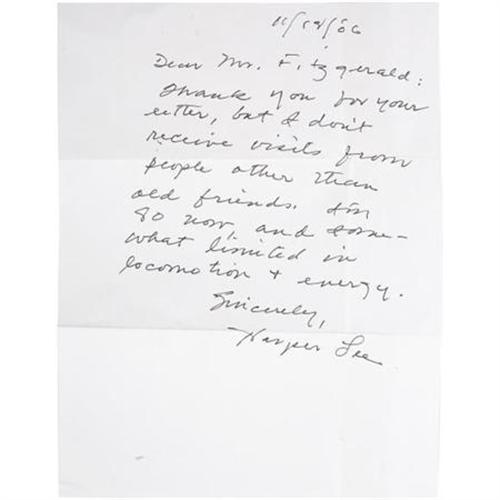 11/19/06
Dear Mr. Fitzgerald:
Thank you for your
letter, but I don't
receive visits from
people other than
old friends. I'm
80 now, and some-
what limited in
locomotion + energy.
Sincerely,
Harper Lee